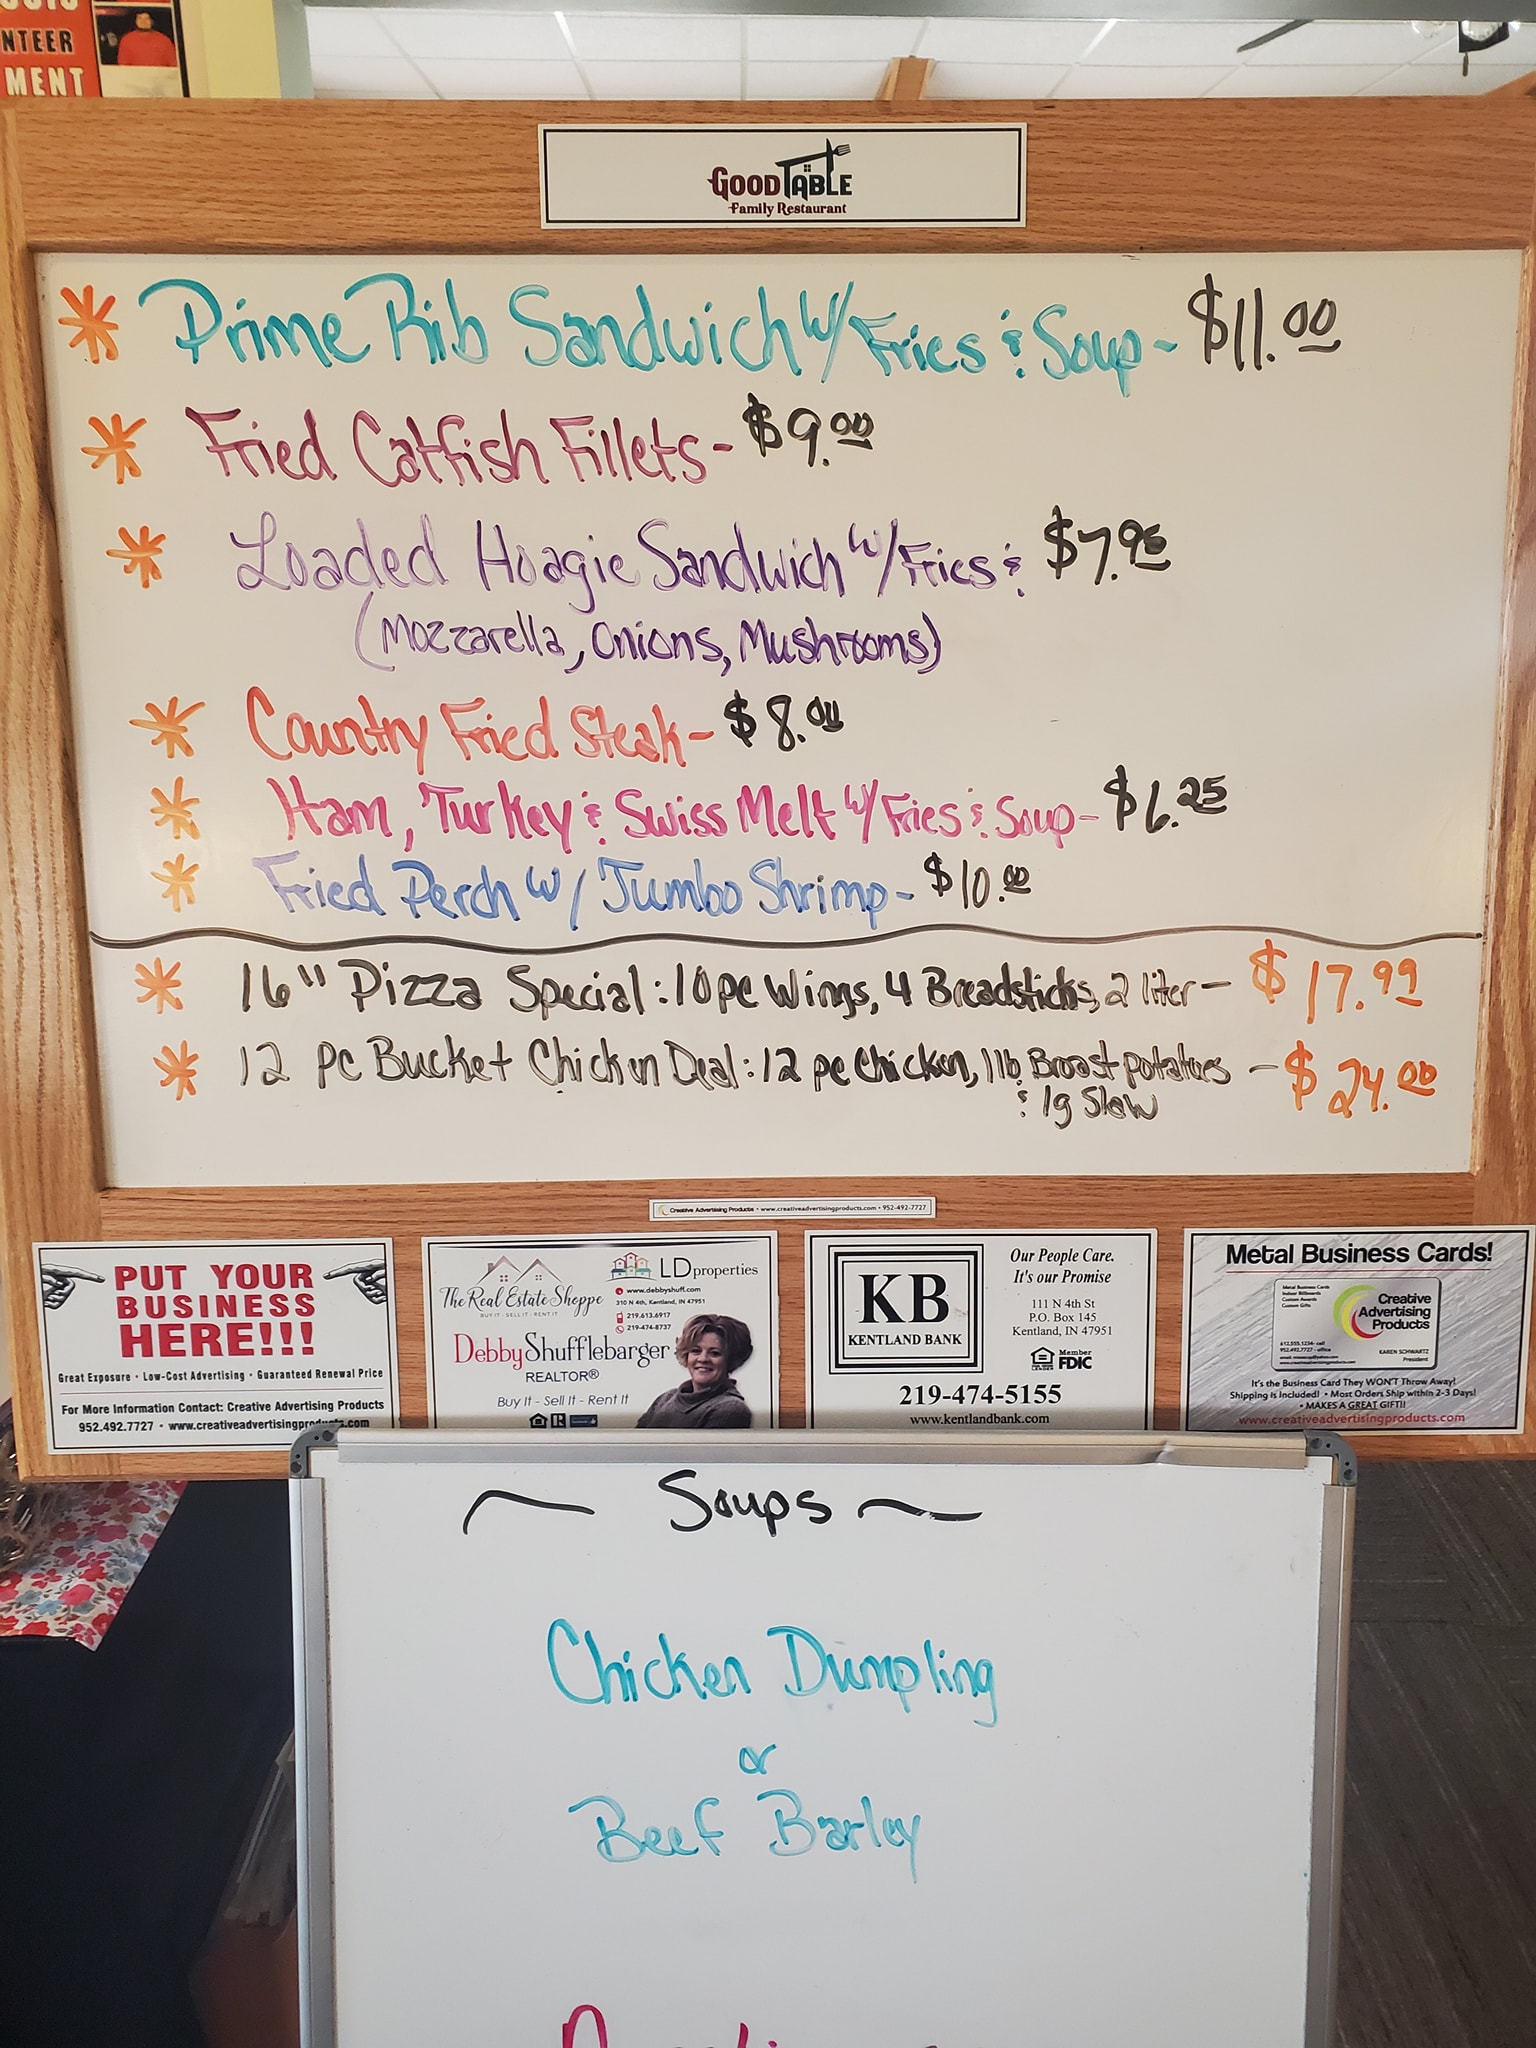 NTEER
MENT
GOOD TABLE
Family Restaurant
* Prime Rib Sandwich w/Fries & Soup - $11.00
* Fried Catfish Fillets - $9.00
* Loaded Hoagie Sandwich w/Fries & $7.95
(Mozzarella, Onions, Mushrooms)
* Country Fried Steak - $8.00
* Ham, Turkey & Swiss Melt w/Fries & Soup - $6.25
* Fried Perch w/ Jumbo Shrimp - $10.00
* 16" Pizza Special: 10pc Wings, 4 Breadsticks, 2 liter - $17.99
* 12 pc Bucket Chicken Deal: 12 pc Chicken, 1lb Broast potatoes - $24.00
& 1g Slaw
Creative Advertising Products • www.creativeadvertisingproducts.com • 952-492-7727
PUT YOUR
BUSINESS
HERE!!!
Great Exposure • Low-Cost Advertising • Guaranteed Renewal Price
For More Information Contact: Creative Advertising Products
952.492.7727 • www.creativeadvertisingproducts.com
The Real Estate Shoppe
BUY IT - SELL IT - RENT IT
LD properties
www.debbyshuff.com
310 N 4th, Kentland, IN 47951
219.613.6917
219-474-8737
Debby Shufflebarger
REALTOR®
Buy It - Sell It - Rent It
KB
KENTLAND BANK
Our People Care.
It's our Promise
111 N 4th St
P.O. Box 145
Kentland, IN 47951
Member
FDIC
219-474-5155
www.kentlandbank.com
Metal Business Cards!
Metal Business Cards
Indoor Billboards
Custom Awards
Custom Gifts
Creative
Advertising
Products
612.555.1234- cell
952.492.7727 - office
KAREN SCHWARTZ
President
It's the Business Card They WON'T Throw Away!
Shipping is Included! • Most Orders Ship within 2-3 Days!
• MAKES A GREAT GIFT!!
www.creativeadvertisingproducts.com
~ Soups ~
Chicken Dumpling
or
Beef Barley